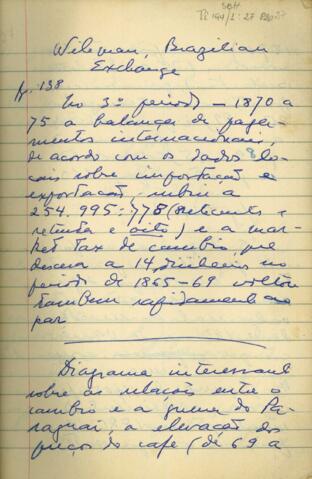 SBH
Pi 194/1:27 P20-27
Wileman, Brazilian
Exchange
p. 138
No 3º período – 1870 a
75 a balança de paga-
mentos internacionais,
de acordo com os dados lo-
cais sobre importação e
exportação, subiu a
254.995:778 (setecentos e
setenta e oito) e a mar-
ket tax de cambio, que
descera a 14 dinheiros no
periodo de 1865-69 voltou
tambem rapidamente ao
par
Diagrama interessante
sobre as relações entre o
cambio e a guerra do Pa-
raguai, a elevação dos
preços do café (de 69 a